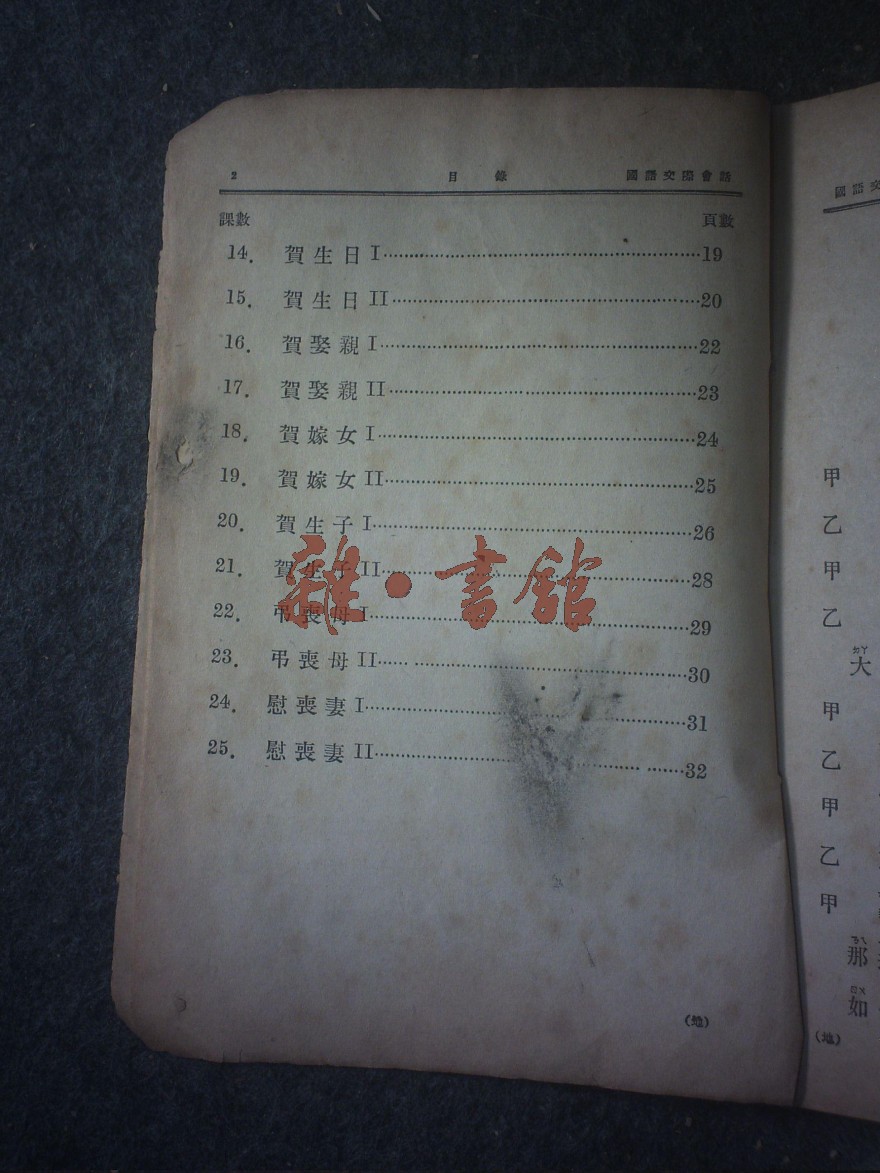 2 目 錄 國語交際會話
課數 頁數
14. 賀生日 I 19
15. 賀生日 II 20
16. 賀娶親 I 22
17. 賀娶親 II 23
18. 賀嫁女 I 24
19. 賀嫁女 II 25
20. 賀生子 I 26
21. 賀生子 II 28
22. 弔喪母 I 29
23. 弔喪母 II 30
24. 慰喪妻 I 31
25. 慰喪妻 II 32
(地)
雜·書館
國語交
甲
乙
甲
乙
大
甲
乙
甲
乙
甲
那
如
(地)